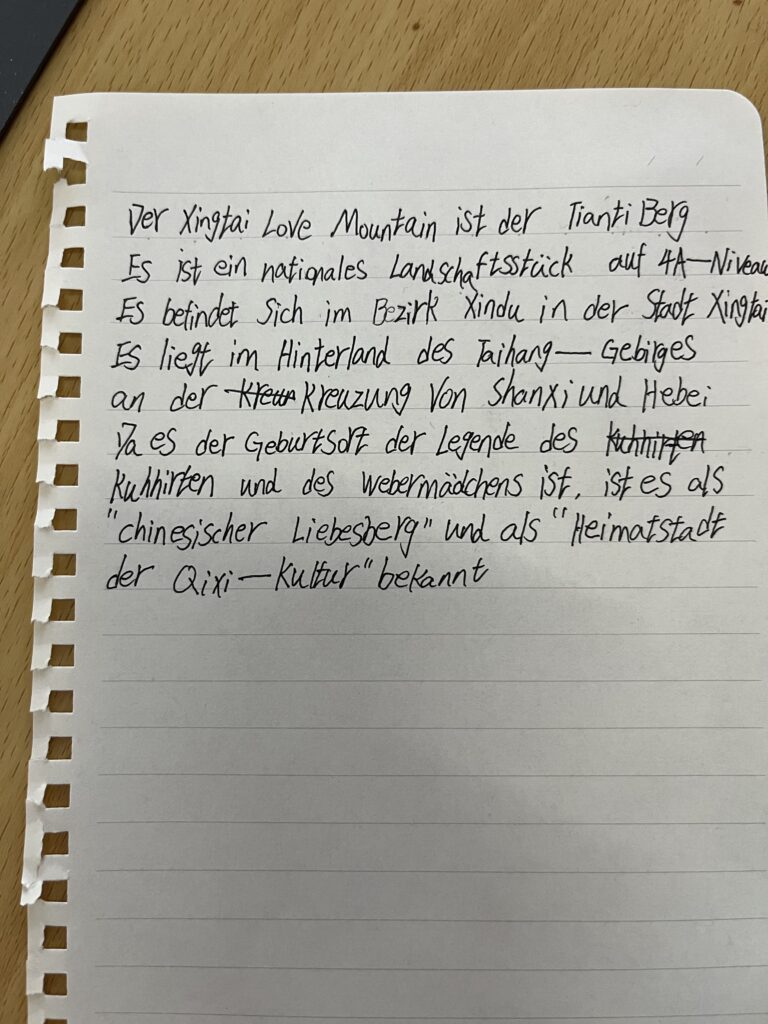 Der Xingtai Love Mountain ist der Tianti Berg
Es ist ein nationales Landschaftsstück auf 4A-Niveau
Es befindet Sich im Bezirk Xindu in der Stadt Xingtai
Es liegt im Hinterland des Taihang-Gebirges
an der Kreuzung Von Shanxi und Hebei
Da es der Geburtsort der Legende des Kuhhirten
Kuhhirten und des webermädchens ist, ist es als
"chinesischer Liebesberg" und als "Heimatstadt
der Qixi-Kultur" bekannt